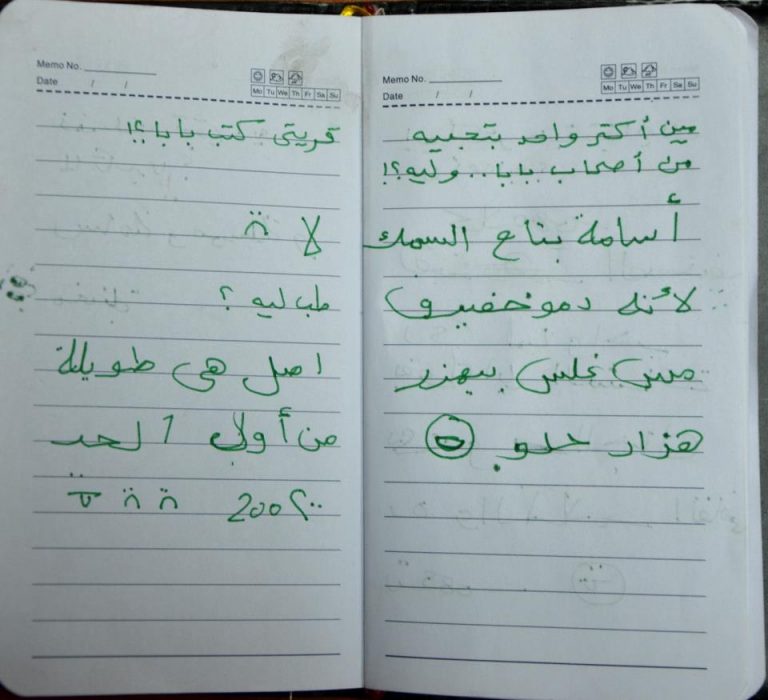 Memo No.
Date / /
Mo Tu We Th Fr Sa Su
مين أكتر واحد بتحبيه
من أصحاب بابا..وليه؟!
أسامة بتاع السمك
لأنه دمو خفيف و
مش غلس بيهزر
هزار حلو.
Memo No.
Date / /
Mo Tu We Th Fr Sa Su
قريتى كتب بابا؟!
لا
طب ليه ؟
اصل هى طويلة
من أول 1 لحد
200